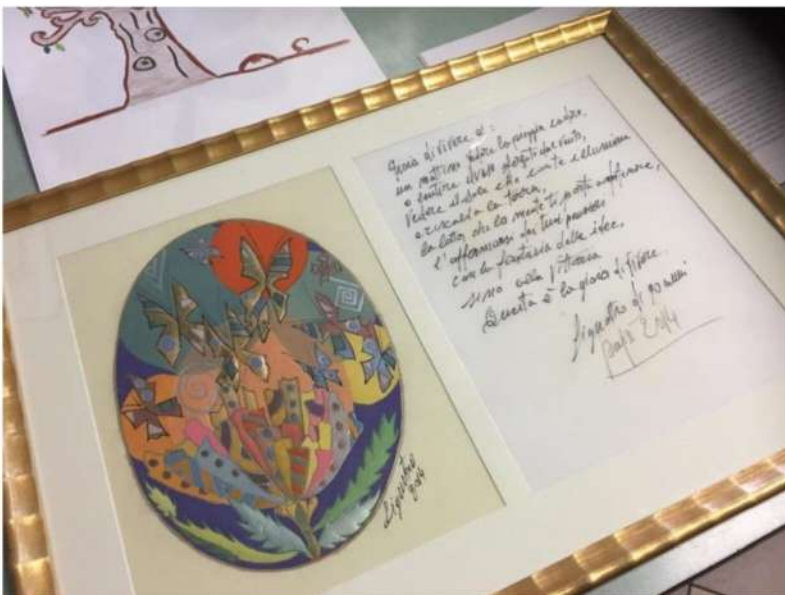 Gioia di vivere è:
un mattino vedere la pioggia cadere,
o sentire il volo dal vento,
vedere il sole che e illumina
e riscalda la terra,
la lotta che la mente ti porta,
l'affermarsi dei tuoi pensieri
con la fantasia delle idee,
sino alla vittoria
Questa è la gioia di vivere.
Ligustro di 90 anni
2014
Ligustro
2014